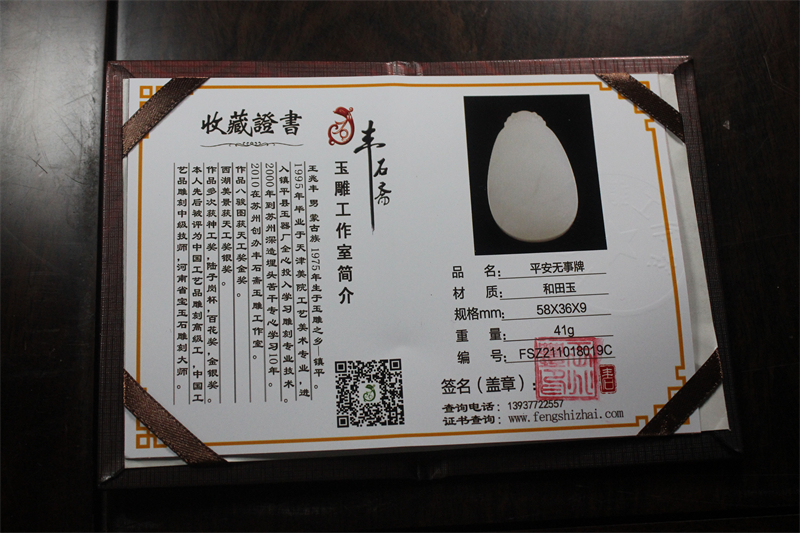 收藏證書
丰石斋
玉雕工作室简介
王兆丰 男 蒙古族 1975年生于玉雕之乡—镇平。
1995年毕业于天津美院工艺美术专业，进
入镇平县玉器厂全心投入学习雕刻专业技术。
2000年到苏州深造埋头苦干专心学习10年。
2010在苏州创办丰石斋玉雕工作室。
作品八骏图获天工奖金奖。
西湖美景获天工奖银奖。
作品多次获神工奖，陆子岗杯，百花奖，金银奖。
本人先后被评为中国工艺品雕刻高级工，中国工
艺品雕刻中级技师，河南省宝玉石雕刻大师。
品 名： 平安无事牌
材 质： 和田玉
规格mm： 58X36X9
重 量： 41g
编 号： FSZ211018019C
签名（盖章）：
查询电话：13937722557
证书查询：www.fengshizhai.com